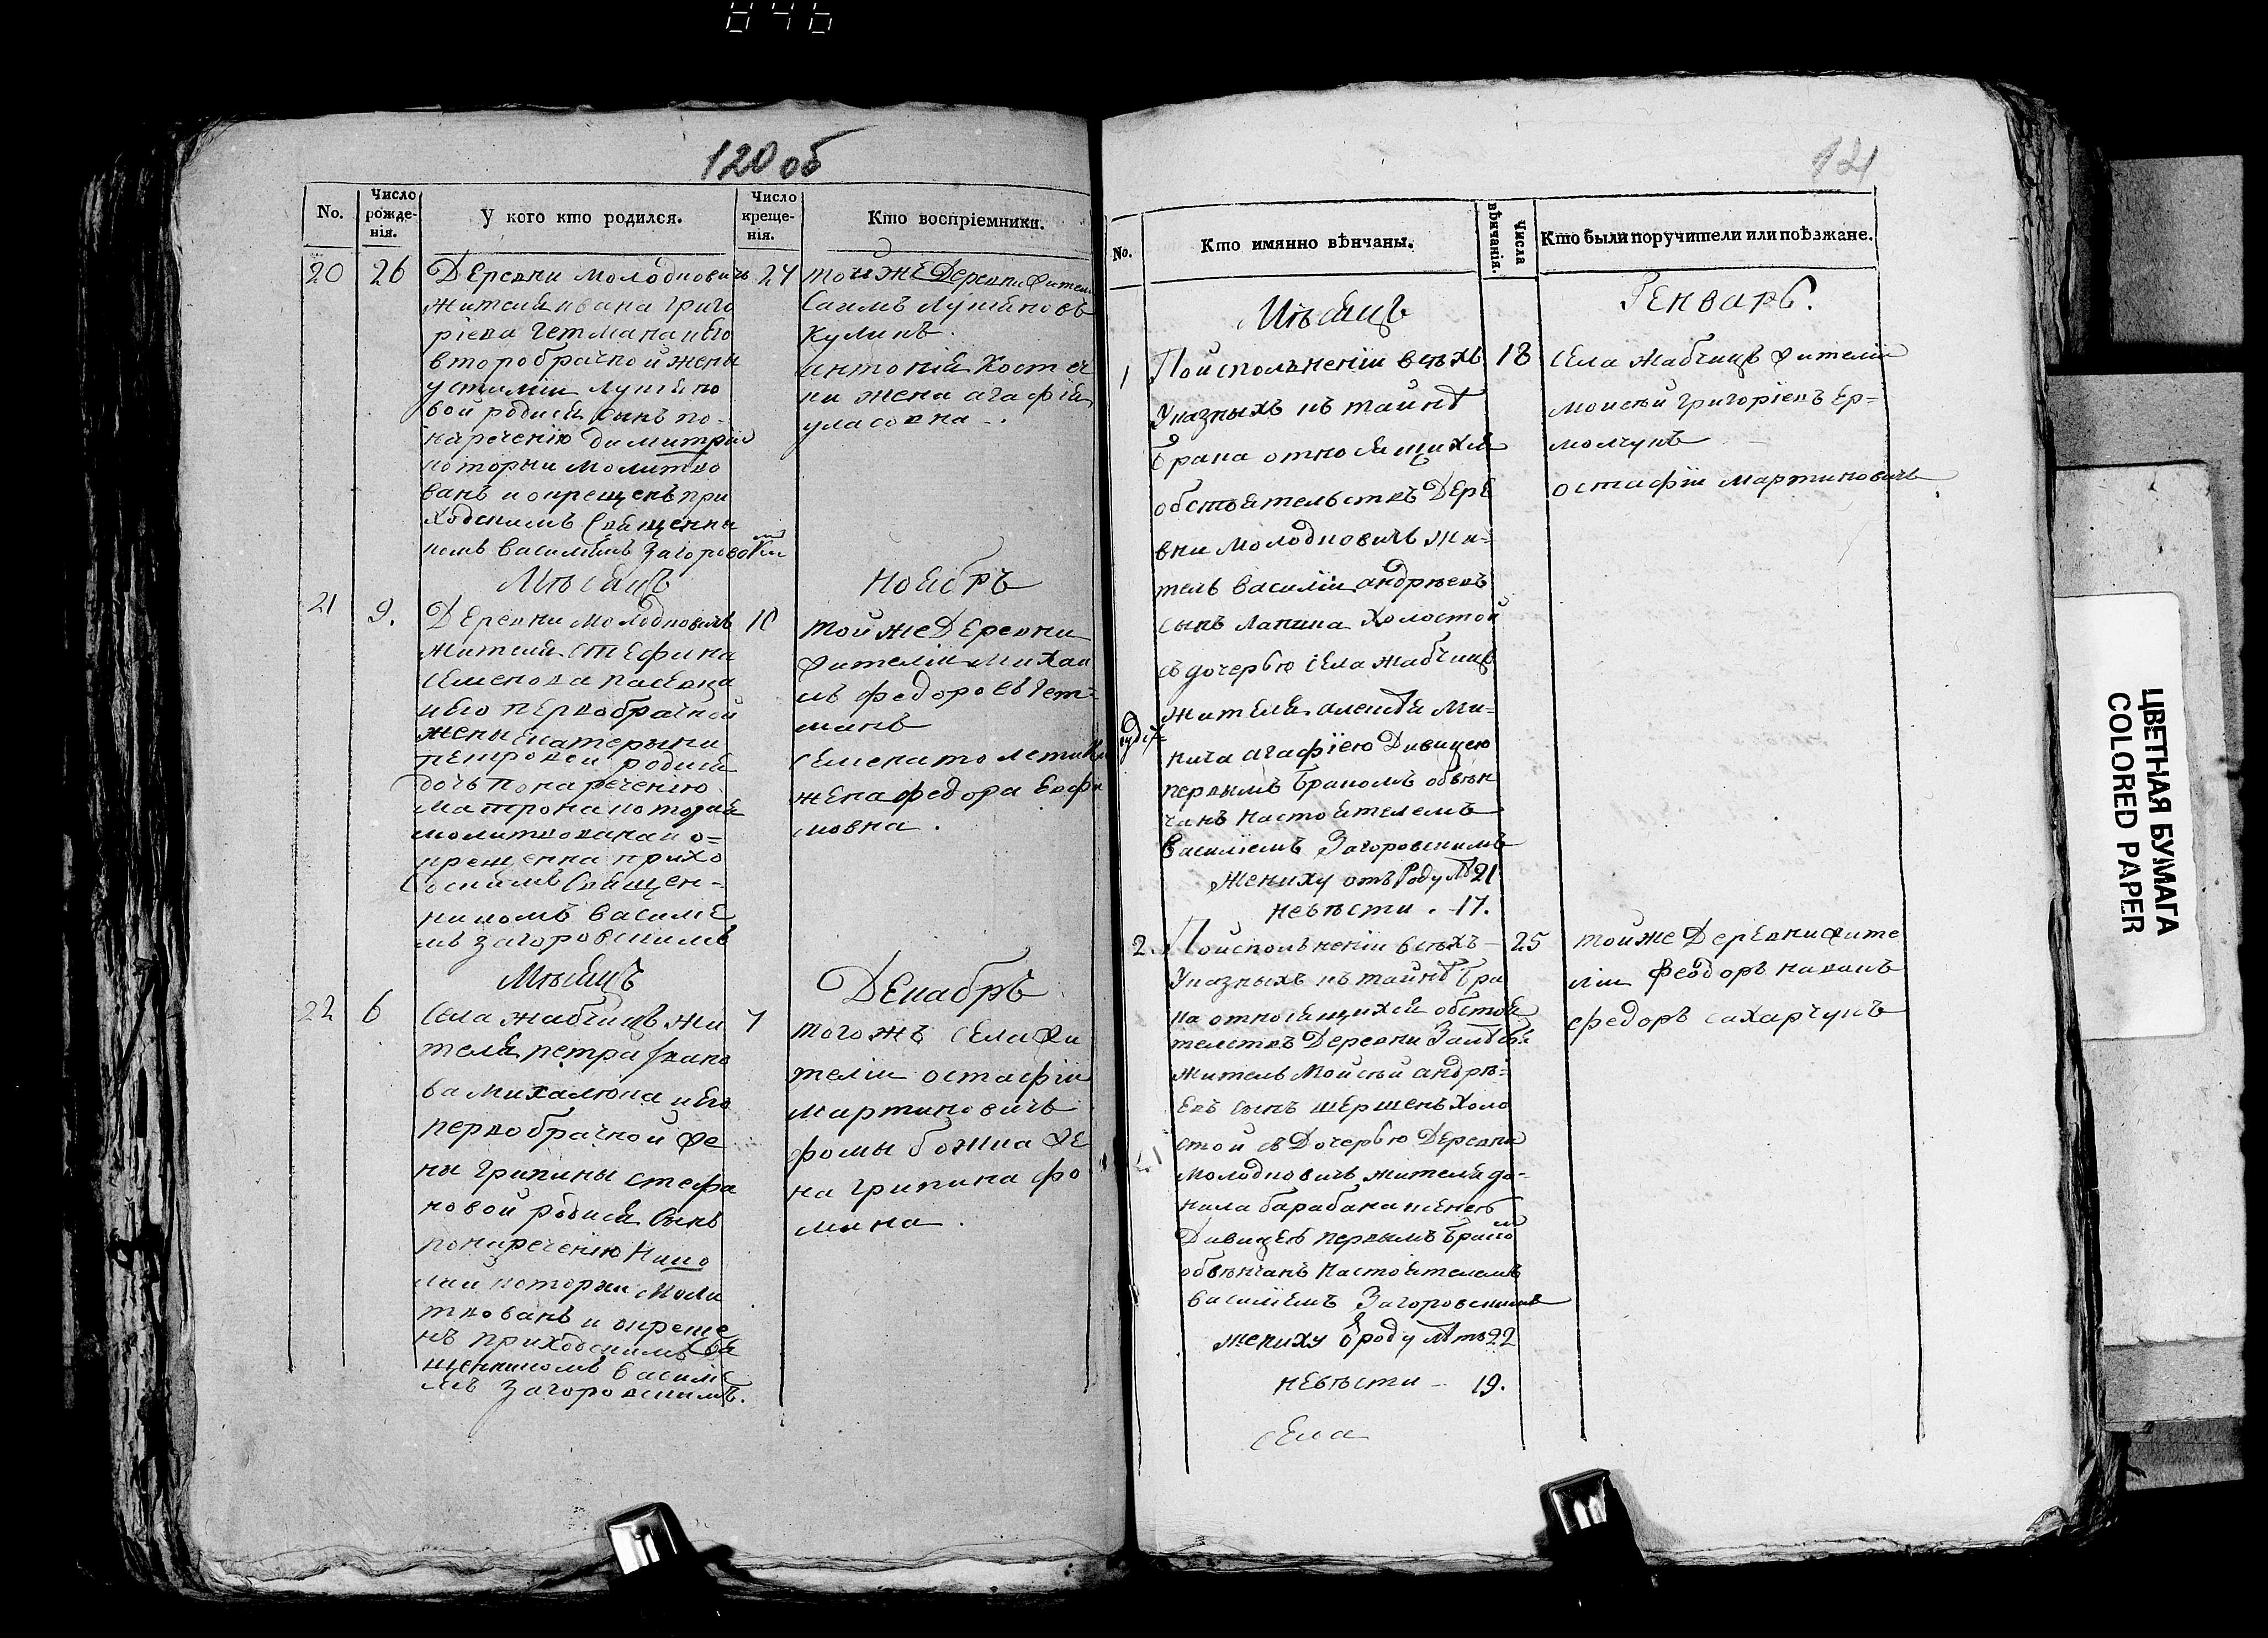 846
120 об
No.
Число рожде-нія.
У кого кто родился.
Число креще-нія.
Кто воспріемники.
20 26 Деревни Молодновичъ 27
жителя ивана григо
ріева гетмана и его
второбрачной жены
родися сынъ по
наречению димитрій
которий молитво
ванъ и окрещенъ при
ходскимъ Священни
комъ Василіемъ Загоровским
тойже Деревни жители
куликъ.
жена агафія
уласовна.
Мѣсяцъ Ноябръ
21 9. Деревни Молодновичъ 10
жителя Стефана
Семенова
и его первобрачной
жены Екатерыны
петровой родися
дочь по наречению
Матрона которая
молитвована и о=
крещенна прихо
дскимъ Священ-
никомъ Василіе
мъ Загоровскимъ
тойже Деревни
жители Михаи
лъ федоровъ гет=
манъ
жена федора
мовна.
Мѣсяцъ Декабръ
22 6 Села жабчицъ жи 7
теля петра
ва Михалюка и его
первобрачной же
ны грипины стефа
новой родися Сынъ
по наречению Нико
лай которий Моли
твованъ и окреще
нъ приходскимъ Свя
щенникомъ Василіе
мъ Загоровскимъ.
того жъ Села жи
теліи остафій
мартиновичъ
фомы божка же
на грипина фо
мина.
121
No.
Кто имянно вѣнчаны.
Числа вѣнчанія.
Кто были поручители или поѣзжане.
Мѣсяцъ Генварь.
1 По исполненіи всѣхъ 18
Указныхъ къ тайнѣ
брака относящихся
обстоятельствъ Дере
вни Молодновичъ жи=
тель Василій андрѣевъ
сынъ Лапика Холостой
съ дочерью села жабчицъ
жителя алексѣя Ми=
кича агафіею Дивицею
первымъ бракомъ обвѣн
чанъ настоятелемъ
Василіемъ Загоровскимъ
Жениху отъ Роду лѣ 21
невѣсти . 17.
Села жабчицъ жители
моисѣй григоріевъ Ер=
молчукъ
остафій мартиновичъ
2. По исполненіи всѣхъ 25
Указныхъ къ тайнѣ бра
ка относящихся обстоя
телствъ Деревни
житель Мойсѣй андрѣ=
евъ сынъ шершень Холо
стой съ Дочерью Деревни
молодновичъ жителя да-
нила барабана
Дивицею первымъ браком
обвѣнчанъ настоятелемъ
Василіемъ Загоровскимъ
жениху ѿ роду лѣтъ 22
невѣсти - 19.
тойже Деревни жите
ліи феодоръ
федоръ сахарчукъ
Села
ЦВЕТНАЯ БУМАГА
COLORED PAPER